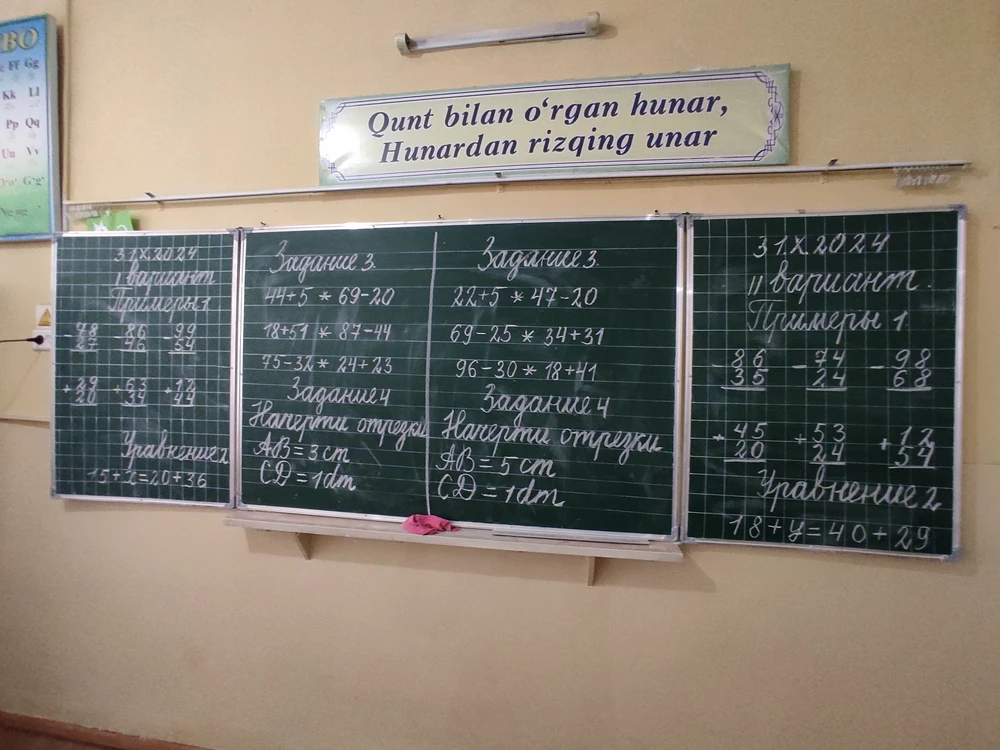 ВО
Ff Gg
Kk Ll
Pp Qq
Uu Vv
G'g'
Ng ng
Qunt bilan o‘rgan hunar,
Hunardan rizqing unar
31.X.2024
I вариант
Примеры 1
- 78 - 86 - 99
27 46 54
+ 29 + 63 + 12
20 34 44
Уравнение 2
15+x=20+36
Задание 3.
44+5 * 69-20
18+51 * 87-44
75-32 * 24+23
Задание 4
Начерти отрезки
AB = 3 cm
CD = 1dm
Задание 3.
22+5 * 47-20
69-25 * 34+31
96-30 * 18+41
Задание 4
Начерти отрезки.
AB = 5 cm
CD = 1dm
31.X.2024
II вариант.
Примеры 1
- 86 - 74 - 98
35 24 68
+ 45 + 53 + 12
20 24 54
Уравнение 2
18+y=40+29